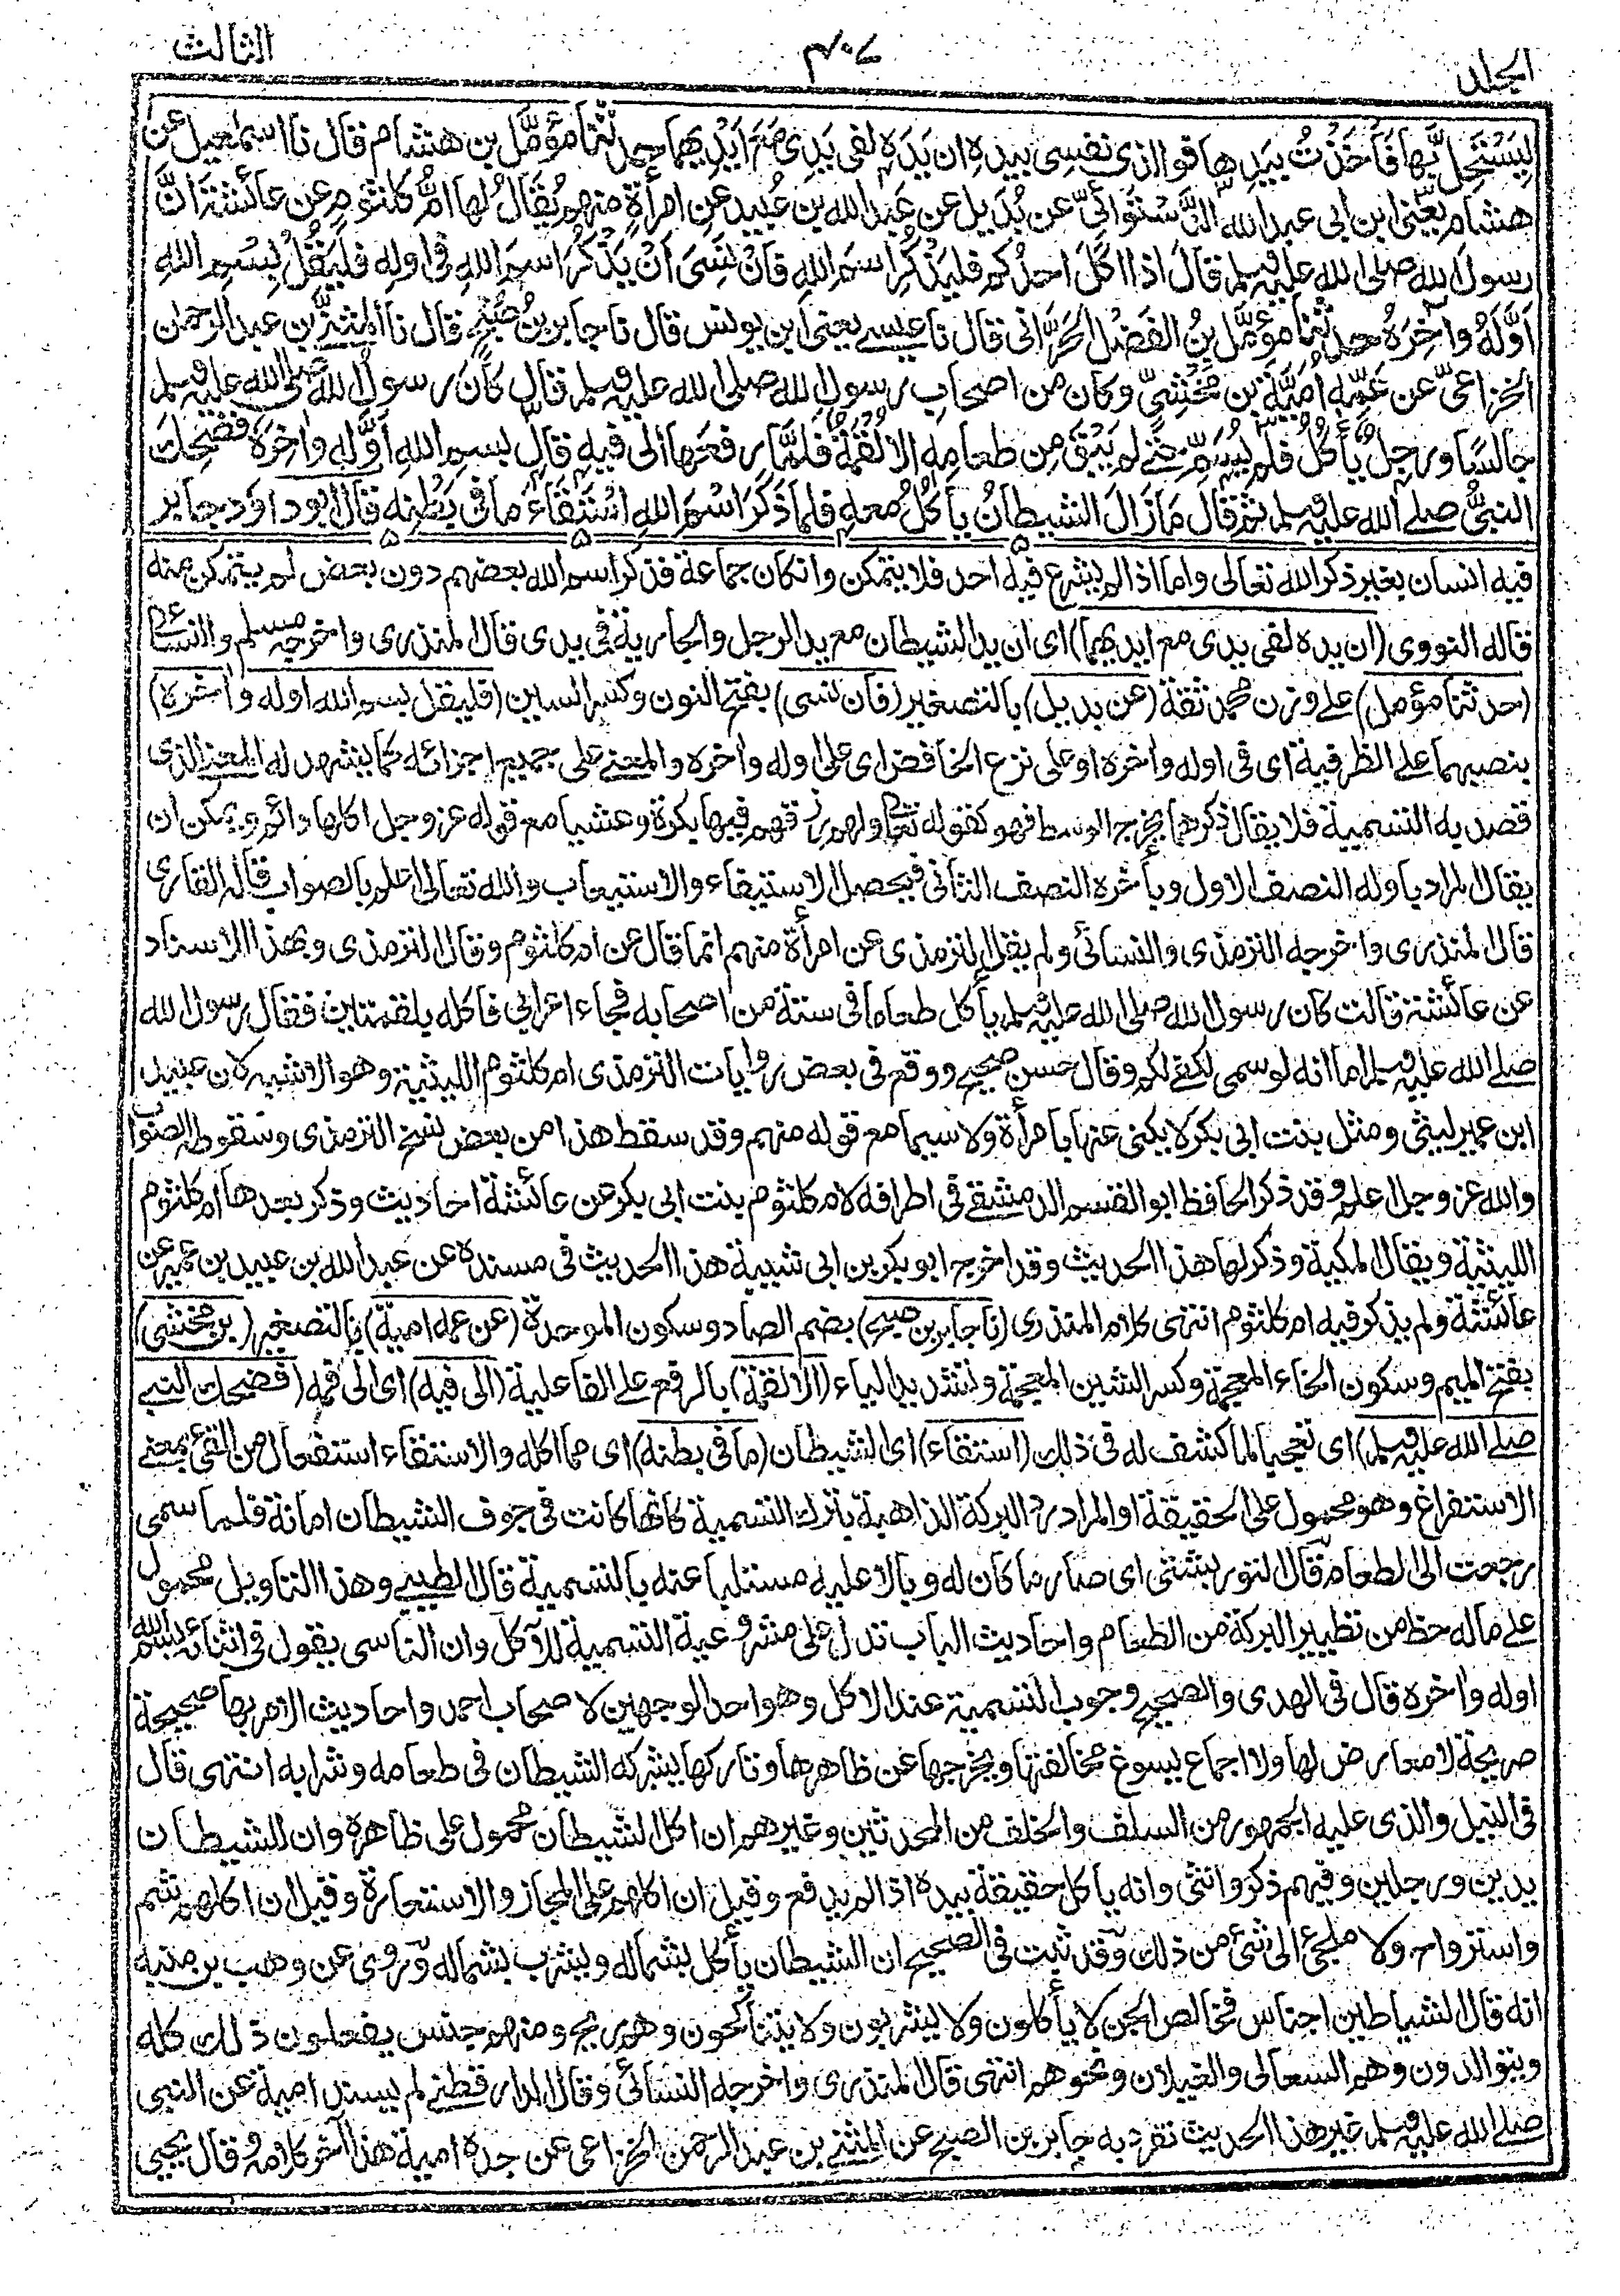 الجلد
٤٠٧
الثالث
لِيَسْتَحِلَّ بِهَا فَأَخَذْتُ بِيَدِهَا فوالذى نفسى بيده ان يَدَه لفى يَدِى مَعَ أَيْدِيهِمَا حدثنا مُؤَمَّل بن هشام قال نا اسمعيل عن
هشام يَعْنِى ابن ابى عبد الله الدَّسْتَوَائِىَّ عن بُدَيل عن عبد الله بن عُبيد عن امرأةٍ منهم يُقَالُ لها اُمُّ كلثوم عن عائشة اَنَّ
رسول الله صلى الله عليه وسلم قال اذا اَكَلَ احدُكم فليَذْكُر اسمَ الله فَاِنْ نَسِىَ اَنْ يَذْكُرَ اسم الله فى اوله فليَقُلْ بسْمِ اللهِ
اَوَّلَهُ وآخِرَهُ حدثنا مؤَمَّل بنُ الفَضْل الحَرَّانى قال نا عيسى يعنى ابن يونس قال نا جابر بنُ صُبْحٍ قال نا المثنَّى بن عبد الرحمن
الخزاعىّ عن عَمِّه اُمَيَّةَ بن مَخْشِىٍّ وكان من اصحاب رسول الله صلى الله عليه وسلم قال كان رسول الله صلى الله عليه وسلم
جالسًا ورجل يأكُلُ فلم يُسَمِّ حتى لم يَبْقَ مِن طعامِه الا لُقْمَةٌ فَلَمَّا رفعَها الى فيه قال بسم الله اَوَّلَه واٰخِرَهُ فضَحِكَ
النبىُّ صلى الله عليه وسلم ثم قال مَازَالَ الشيطانُ يأكُلُ معه فلما ذَكَرَ اسْمَ اللهِ اسْتَقَاءَ ما فى بَطْنِه قال ابو داود جابر
فيه انسان بغير ذكر الله تعالى واما اذا لم يشرع فيه احد فلا يتمكن وان كان جماعة فذكر اسم الله بعضهم دون بعض لم يتمكن منه
قاله النووى (ان يده لفى يدى مع ايديهما) اى ان يد الشيطان مع يد الرجل والجارية فى يدى قال المنذرى واخرجه مسلم والنسائى
(حدثنا مؤمل) على وزن محمد ثقة (عن بديل) بالتصغير (فان نسى) بفتح النون وكسر السين (فليقل بسم الله اوله واٰخره)
بنصبهما على الظرفية اى فى اوله واٰخره او على نزع الخافض اى على اوله واٰخره والمعنى على جميع اجزائه كما يشهد له المعنى الذى
قصد به التسمية فلا يقال ذكرهما يخرج الوسط فهو كقوله تعالى ولهم رزقهم فيها بكرة وعشيا مع قوله عز وجل اكلها دائم ويمكن ان
يقال المراد باوله النصف الاول وبآخره النصف الثانى فيحصل الاستيفاء والاستيعاب والله تعالى اعلم بالصواب قاله القارى
قال المنذرى واخرجه الترمذى والنسائى ولم يقل الترمذى عن امرأة منهم انما قال عن ام كلثوم وقال الترمذى وبهذا الاسناد
عن عائشة قالت كان رسول الله صلى الله عليه وسلم يأكل طعاما فى ستة من اصحابه فجاء اعرابى فاكله بلقمتين فقال رسول الله
صلى الله عليه وسلم اما انه لو سمى لكفى لكم وقال حسن صحيح ووقع فى بعض روايات الترمذى ام كلثوم الليثية وهو الاشبه لان عبيد
ابن عمير ليثى ومثل بنت ابى بكر لا يكنى عنها بامرأة ولا سيما مع قوله منهم وقد سقط هذا من بعض نسخ الترمذى وسقوطه الصواب
والله عز وجل اعلم وقد ذكر الحافظ ابو القسم الدمشقى فى اطرافه لام كلثوم بنت ابى بكر عن عائشة احاديث وذكر بعدها ام كلثوم
الليثية ويقال المكية وذكر لها هذا الحديث وقد اخرج ابو بكر بن ابى شيبة هذا الحديث فى مسنده عن عبد الله بن عبيد بن عمير عن
عائشة ولم يذكر فيه ام كلثوم انتهى كلام المنذرى (نا جابر بن صبح) بضم الصاد وسكون الموحدة (عن عمه امية) بالتصغير (بن مخشى)
بفتح الميم وسكون الخاء المعجمة وكسر الشين المعجمة وتشديد الياء (الا لقمة) بالرفع على الفاعلية (الى فيه) اى الى فمه (فضحك النبى
صلى الله عليه وسلم) اى تعجبا لما كشف له فى ذلك (استقاء) اى الشيطان (ما فى بطنه) اى مما اكله والاستقاء استفعال من القئ بمعنى
الاستفراغ وهو محمول على الحقيقة او المراد رد البركة الذاهبة بترك التسمية كانها كانت فى جوف الشيطان امانة فلما سمى
رجعت الى الطعام قال التوربشتى اى صار ما كان له وبالا عليه مستلبا عنه بالتسمية قال الطيبى وهذا التاويل محمول
على ماله حظ من تطيير البركة من الطعام واحاديث الباب تدل على مشروعية التسمية للآكل وان الناسى يقول فى اثنائه بسم الله
اوله واٰخره قال فى الهدى والصحيح وجوب التسمية عند الاكل وهو احد الوجهين لاصحاب احمد واحاديث الامر بها صحيحة
صريحة لا معارض لها ولا اجماع يسوغ مخالفتها ويخرجها عن ظاهرها وتاركها يشركه الشيطان فى طعامه وشرابه انتهى قال
فى النيل والذى عليه الجمهور من السلف والخلف من المحدثين وغيرهم ان اكل الشيطان محمول على ظاهره وان للشيطان
يدين ورجلين وفيهم ذكر وانثى وانه يأكل حقيقة بيده اذا لم يدفع وقيل ان اكلهم على المجاز والاستعارة وقيل ان اكلهم شم
واسترواح ولا ملجئ الى شئ من ذلك وقد ثبت فى الصحيح ان الشيطان يأكل بشماله ويشرب بشماله وروى عن وهب بن منبه
انه قال الشياطين اجناس فخالص الجن لا يأكلون ولا يشربون ولا يتناكحون وهم ريح ومنهم جنس يفعلون ذلك كله
ويتوالدون وهم السعالى والغيلان ونحوهم انتهى قال المنذرى واخرجه النسائى وقال الدارقطنى لم يسند امية عن النبى
صلى الله عليه وسلم غير هذا الحديث تفرد به جابر بن الصبح عن المثنى بن عبد الرحمن الخزاعى عن جده امية هذا آخر كلامه وقال يحيى